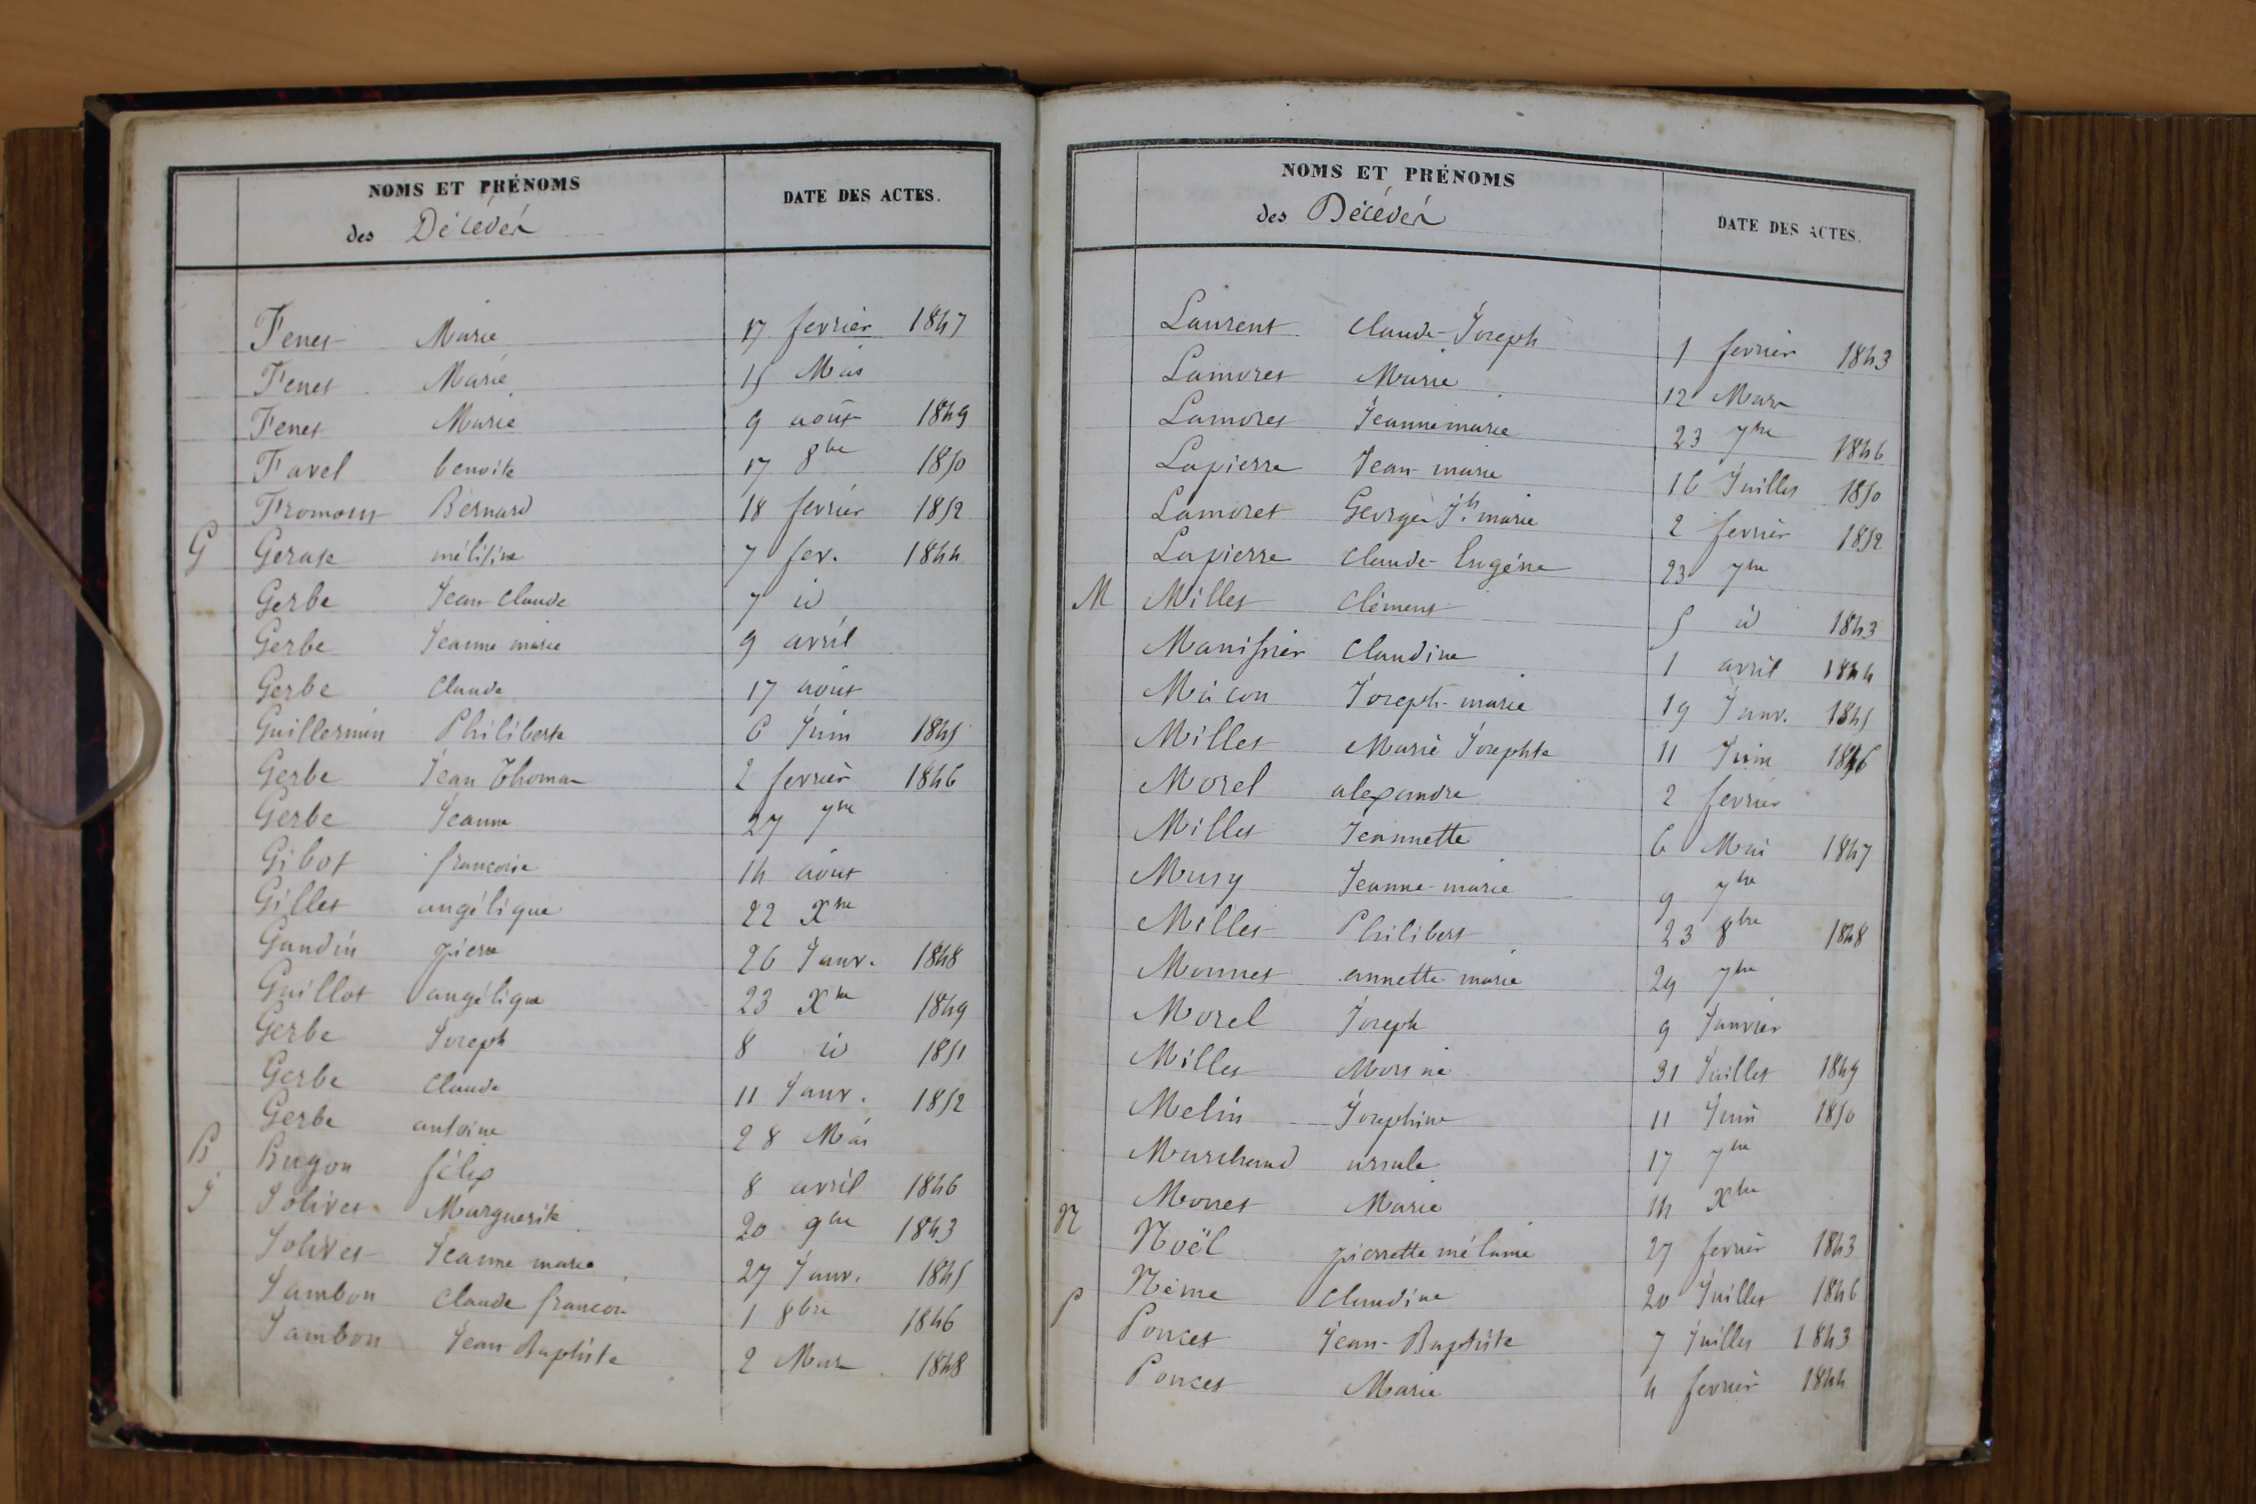 NOMS ET PRÉNOMS
des Décédés
DATE DES ACTES.
Fenet Marie 17 fevrier 1847
Fenet Marie 15 Mai
Fenet Marie 9 août 1849
Favel benoite 17 8bre 1850
Fromont Bernard 18 fevrier 1852
G Gerase mélisine 7 fev. 1844
Gerbe Jean Claude 7 id
Gerbe Jeanne marie 9 avril
Gerbe Claude 17 aout
Guillermin Philiberte 6 Juin 1845
Gerbe Jean Thomas 2 fevrier 1846
Gerbe Jeanne 27 7bre
Gibot francoise 14 aout
Gillet angélique 22 Xbre
Gandin pierre 26 Janv. 1848
Guillot angélique 23 Xbre 1849
Gerbe Joseph 8 id 1851
Gerbe Claude 11 Janv. 1852
Gerbe antoine 28 Mai
B Bugon félix 8 avril 1846
J Jolivet Marguerite 20 9bre 1843
Jolivet Jeanne marie 27 Janv. 1845
Jambon Claude francois 1 8bre 1846
Jambon Jean Baptiste 2 Mars 1848
NOMS ET PRÉNOMS
des Décédés
DATE DES ACTES.
Laurent Claude-Joseph 1 fevrier 1843
Lamoret Marie 12 Mars
Lamoret Jeanne marie 23 7bre 1846
Lapierre Jean marie 16 Juillet 1850
Lamoret George Jh marie 2 fevrier 1852
Lapierre Claude-Eugéne 23 7bre
M Millet Clément 5 id 1843
Manissier Claudine 1 avril 1844
Mâcon Joseph-marie 19 Janv. 1845
Millet Marie Josephte 11 Juin 1846
Morel alexandre 2 fevrier
Millet Jeannette 6 Mai 1847
Musy Jeanne-marie 9 7bre
Millet Philibert 23 8bre 1848
Monnet annette marie 29 7bre
Morel Joseph 9 Janvier
Millet 31 Juillet 1849
Melin Josephine 11 Juin 1850
Marchand ursule 17 7bre
Monet Marie 14 Xbre
N Noël pierrette mélanie 27 fevrier 1843
Nême Claudine 20 Juillet 1846
P Poncet Jean-Baptiste 7 Juillet 1843
Poncet Marie 4 fevrier 1844